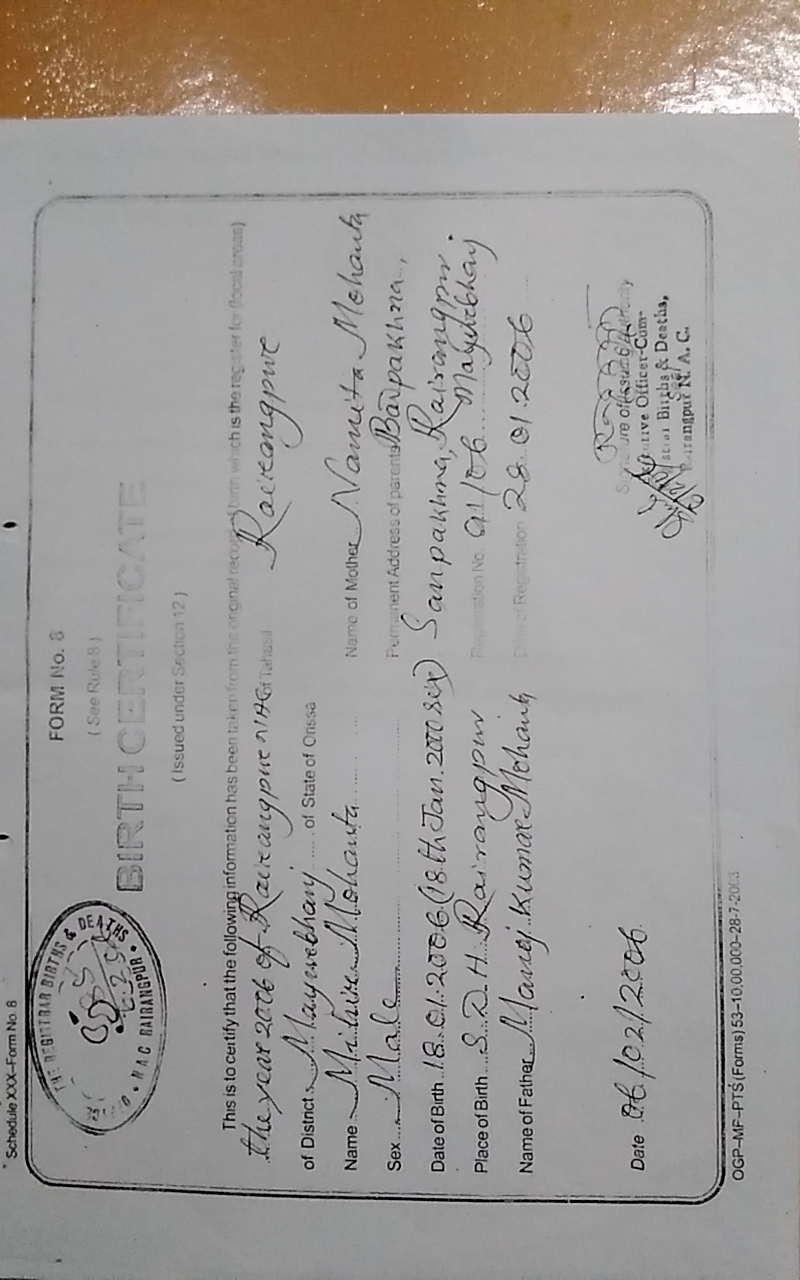 Schedule XXX–Form No. 8
THE REGISTRAR BIRTHS & DEATHS
NAC RAIRANGPUR
FORM No. 8
( See Rule 8 )
BIRTH CERTIFICATE
( Issued under Section 12 )
This is to certify that the following information has been taken from the original record of birth which is the register for (local areas)
the year 2006 of Rairangpur NAC of Tahasil Rairangpur
of District Mayurbhanj of State of Orissa
Name Mihir Mohanta Name of Mother Namita Mohanta
Sex Male Permanent Address of parents Barpakhna,
Date of Birth 18.01.2006 (18th Jan. 2000 six) Sanpakhna, Rairangpur
Place of Birth S.D.H. Rairangpur Registration No. 91/06 Mayurbhanj.
Name of Father Manoj Kumar Mohanta Date of Registration 28.01.2006
Date 06/02/2006
Signature of Issuing Authority
Executive Officer-Cum-
Births & Deaths,
Seal
Rairangpur N. A. C.
OGP–MF–PTS (Forms) 53–10,00,000–28-7-2003